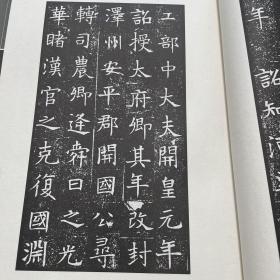 工部中大夫開皇元年
詔授太府卿其年改封
澤州安平郡開國公尋
轉司農卿逢舜日之光
華睹漢官之克復國淵
年
詔知